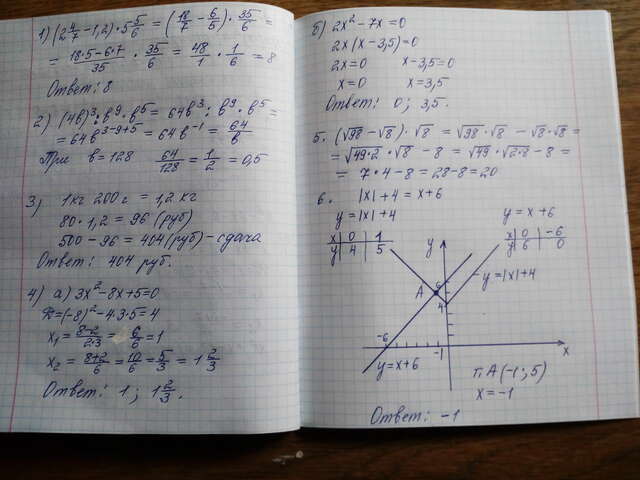 1) (2 4/7 - 1,2) · 5 5/6 = (18/7 - 6/5) · 35/6 =
= (18·5 - 6·7)/35 · 35/6 = 48/1 · 1/6 = 8
Ответ: 8
2) (4в)³ : в⁹ · в⁵ = 64в³ : в⁹ · в⁵ =
= 64в³⁻⁹⁺⁵ = 64в⁻¹ = 64/в
При в = 128 64/128 = 1/2 = 0,5
3) 1кг 200г = 1,2 кг
80 · 1,2 = 96 (руб)
500 - 96 = 404 (руб) - сдача
Ответ: 404 руб.
4) а) 3x² - 8x + 5 = 0
D = (-8)² - 4·3·5 = 4
x₁ = (8-2)/(2·3) = 6/6 = 1
x₂ = (8+2)/6 = 10/6 = 5/3 = 1 2/3
Ответ: 1; 1 2/3.
б) 2x² - 7x = 0
2x(x - 3,5) = 0
2x = 0 x - 3,5 = 0
x = 0 x = 3,5
Ответ: 0; 3,5.
5. (√98 - √8) · √8 = √98 · √8 - √8 · √8 =
= √49·2 · √8 - 8 = √49 · √2·8 - 8 =
= 7 · 4 - 8 = 28 - 8 = 20
6. |x| + 4 = x + 6
y = |x| + 4 y = x + 6
x | 0 | 1 y x | 0 | -6
y | 4 | 5 y | 6 | 0
y = |x| + 4
A 4
-6 -1 x
y = x + 6
т. A (-1; 5)
x = -1
Ответ: -1